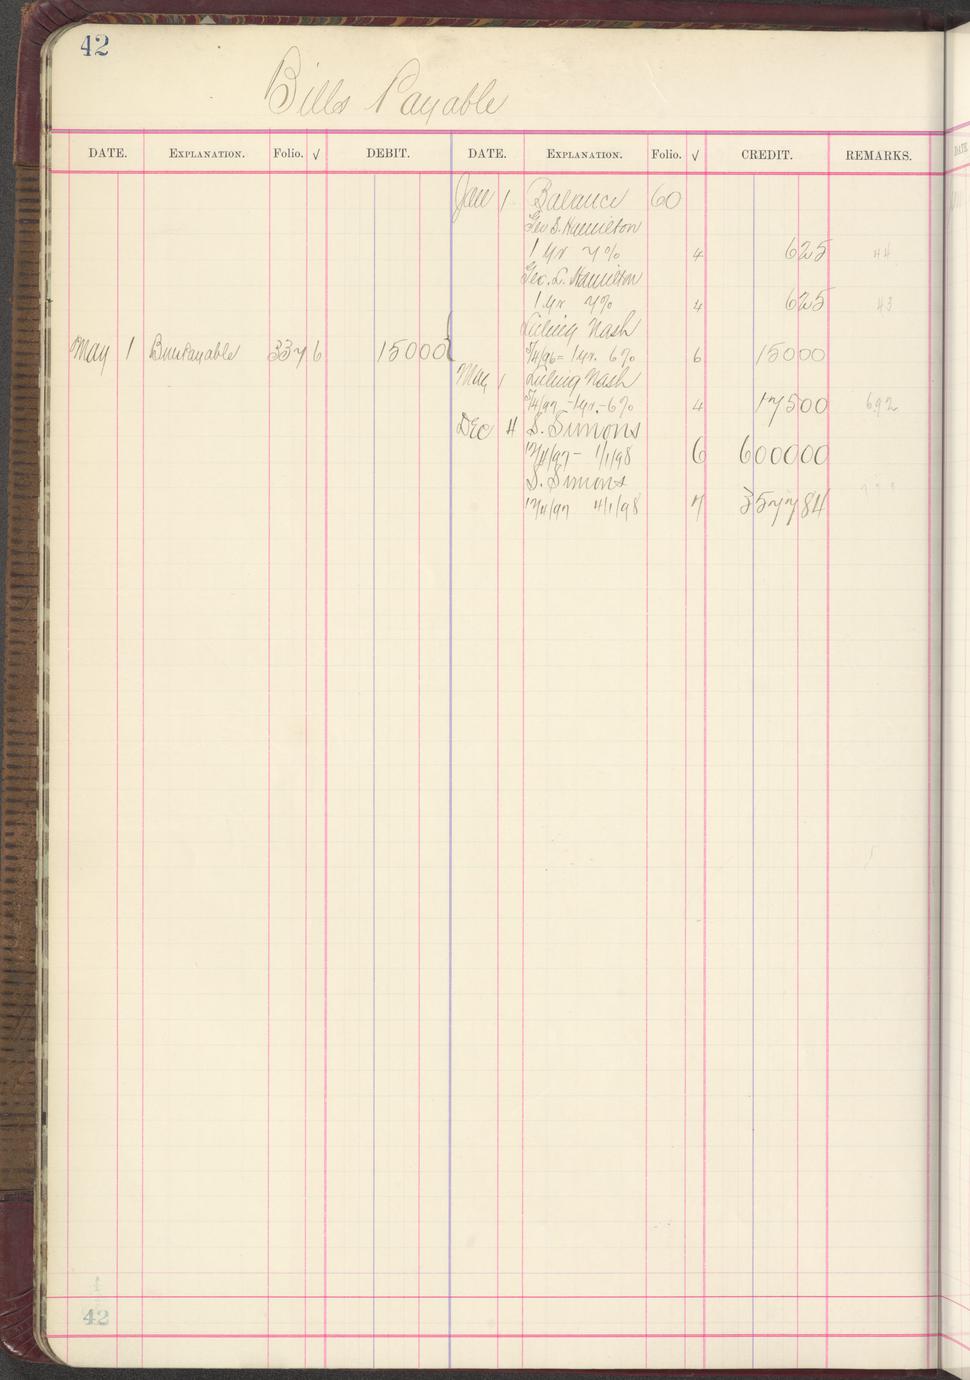 42
Bills Payable
DATE. EXPLANATION. Folio. √ DEBIT. DATE. EXPLANATION. Folio. √ CREDIT. REMARKS.
Jan 1 Balance 60
Geo S. Hamilton
1 yr 7% 4 625 44
Geo. S. Hamilton
1 yr 7% 4 625 43
Luling Nash
May 1 Bills Payable 337 6 15000 5/4/96= 1 yr. 6% 6 15000
May 1 Luling Nash
5/4/97 - 1 yr. - 6% 4 17500 692
DEC 4 S. Simons
12/4/97 - 1/1/98 6 600000
S. Simons
12/4/97 4/1/98 7 357784
42